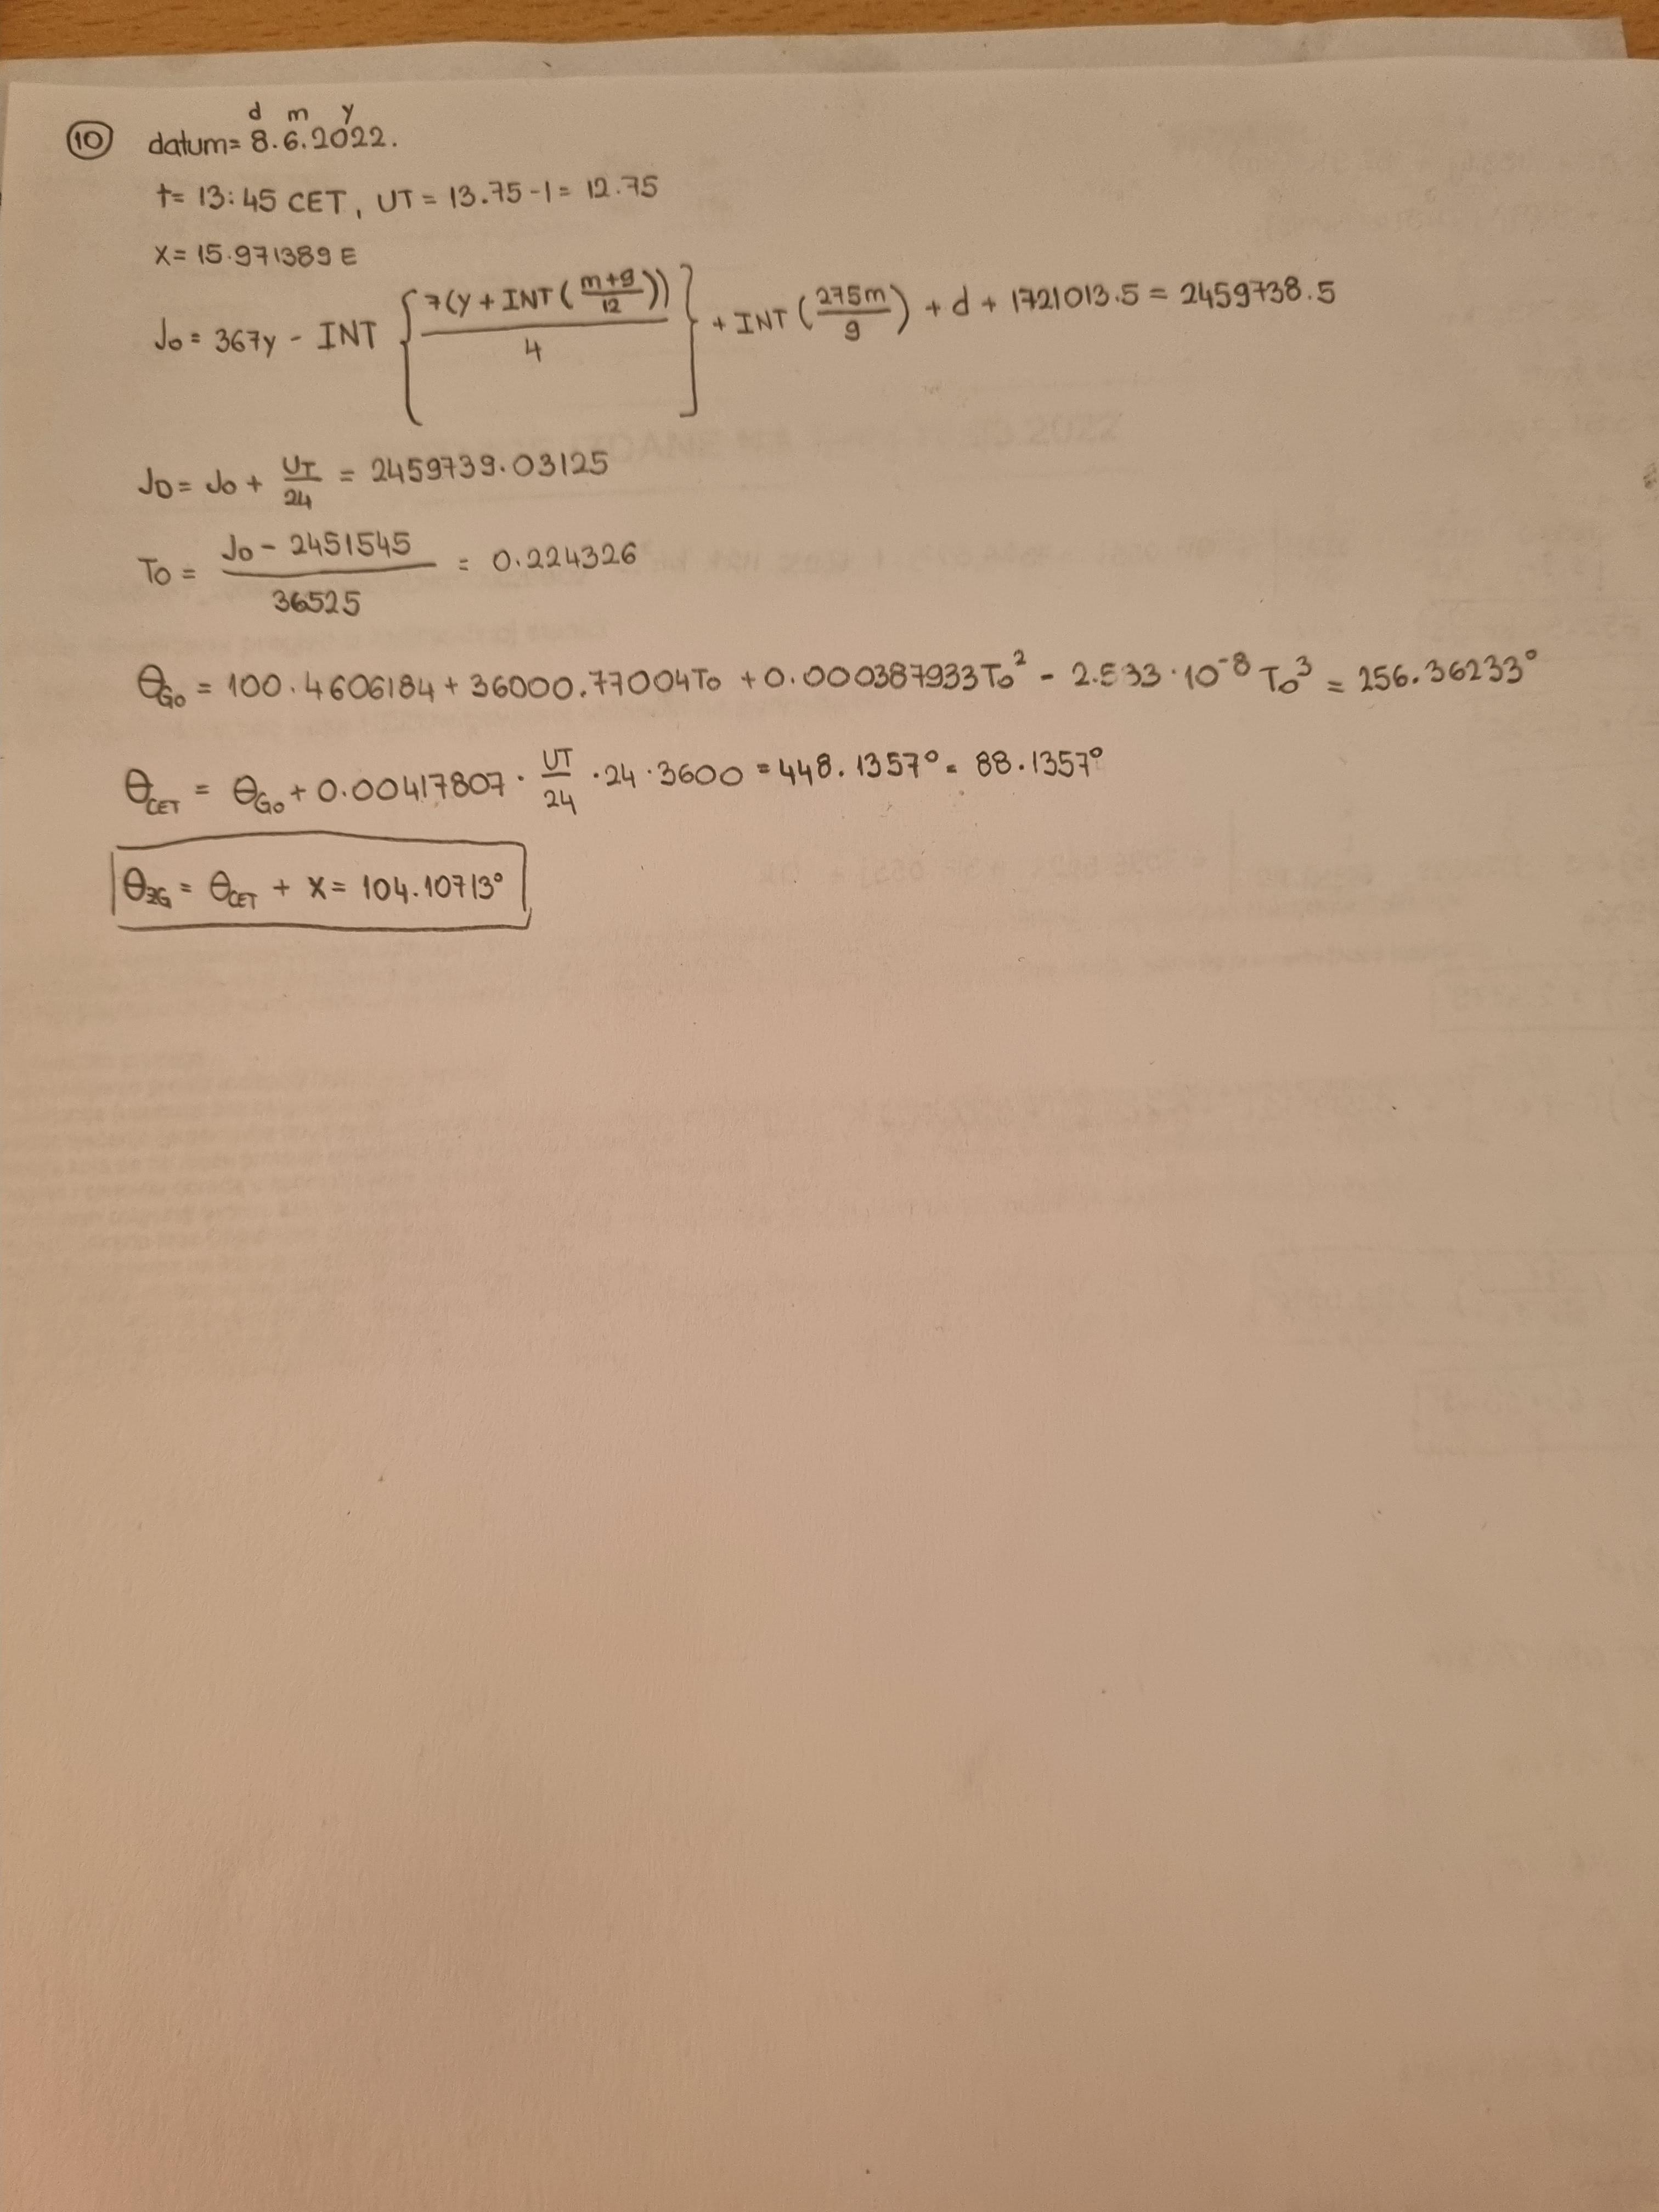 d m y
10 datum= 8.6.2022.
t= 13:45 CET, UT = 13.75-1= 12.75
x= 15.971389 E
J0 = 367y - INT { 7(y + INT(m+9/12)) / 4 } + INT(275m/9) + d + 1721013.5 = 2459738.5
JD = J0 + UT/24 = 2459739.03125
T0 = J0 - 2451545 / 36525 = 0.224326
θG0 = 100.4606184 + 36000.77004T0 + 0.000387933T0² - 2.583·10⁻⁸ T0³ = 256.36233°
θCET = θG0 + 0.00417807 · UT/24 · 24 · 3600 = 448.1357° = 88.1357°
θZG = θCET + x = 104.10713°